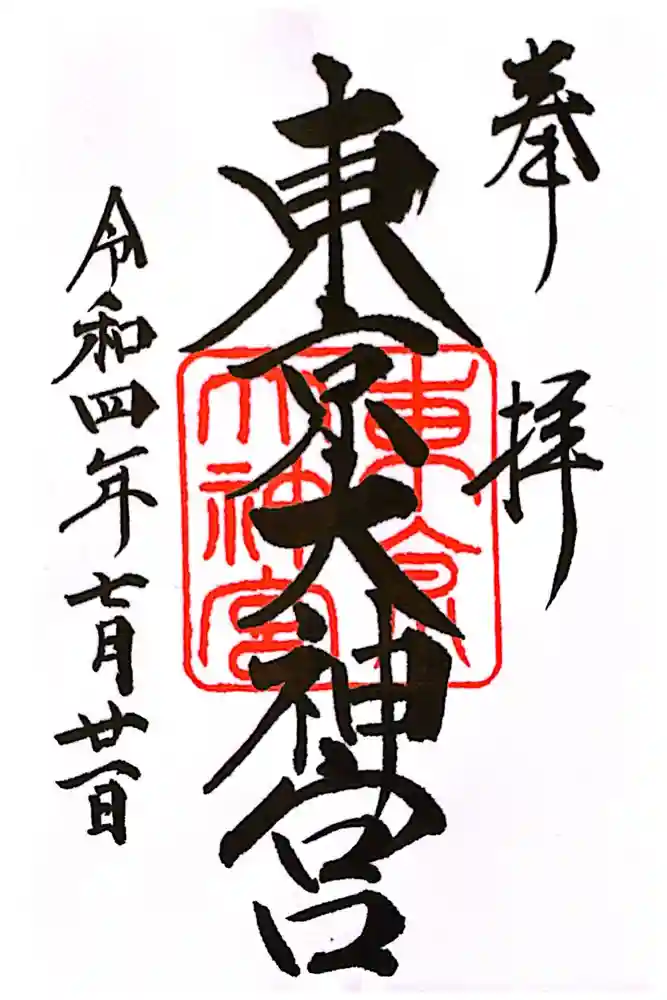 奉拝
東京大神宮
東京
大神宮
令和四年七月廿一日